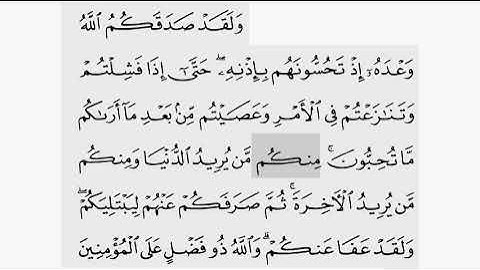 وَلَقَدۡ صَدَقَكُمُ ٱللَّهُ
وَعۡدَهُۥٓ إِذۡ تَحُسُّونَهُم بِإِذۡنِهِۦۖ حَتَّىٰٓ إِذَا فَشِلۡتُمۡ
وَتَنَٰزَعۡتُمۡ فِي ٱلۡأَمۡرِ وَعَصَيۡتُم مِّنۢ بَعۡدِ مَآ أَرَىٰكُم
مَّا تُحِبُّونَۚ مِنكُم مَّن يُرِيدُ ٱلدُّنۡيَا وَمِنكُم
مَّن يُرِيدُ ٱلۡأٓخِرَةَۚ ثُمَّ صَرَفَكُمۡ عَنۡهُمۡ لِيَبۡتَلِيَكُمۡۖ
وَلَقَدۡ عَفَا عَنكُمۡۗ وَٱللَّهُ ذُو فَضۡلٍ عَلَى ٱلۡمُؤۡمِنِينَ